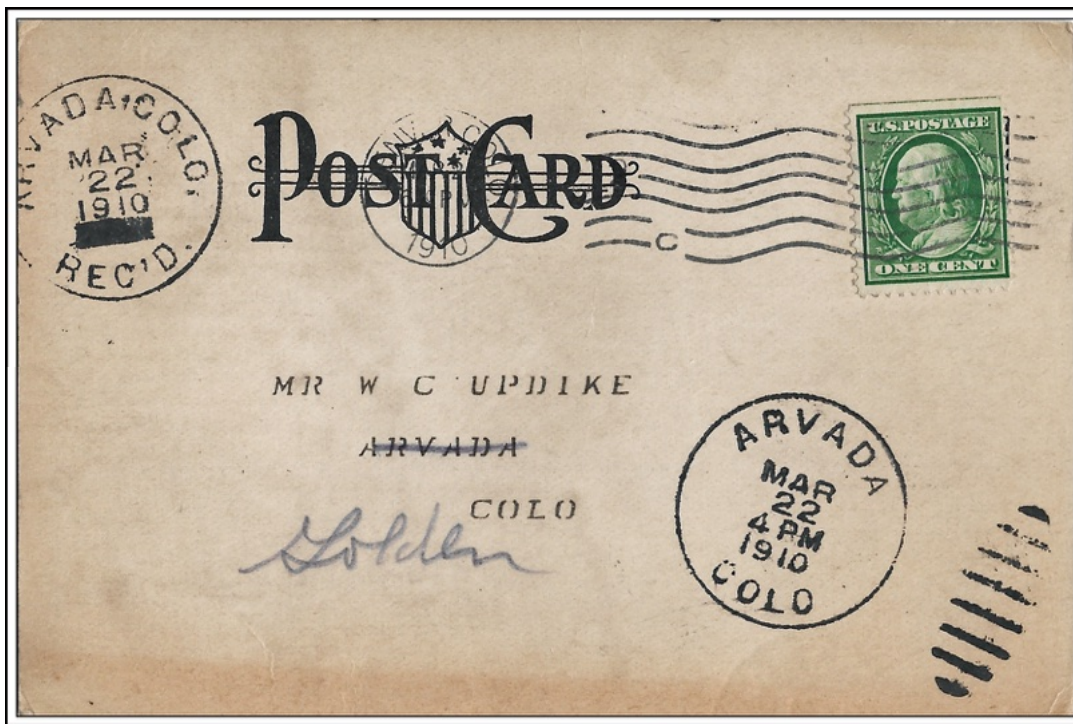 ARVADA, COLO.
MAR
22
1910
REC'D.
POST CARD
1910
C
U.S. POSTAGE
ONE CENT
MR W C UPDIKE
ARVADA
COLO
Golden
ARVADA
MAR
22
4 PM
1910
COLO